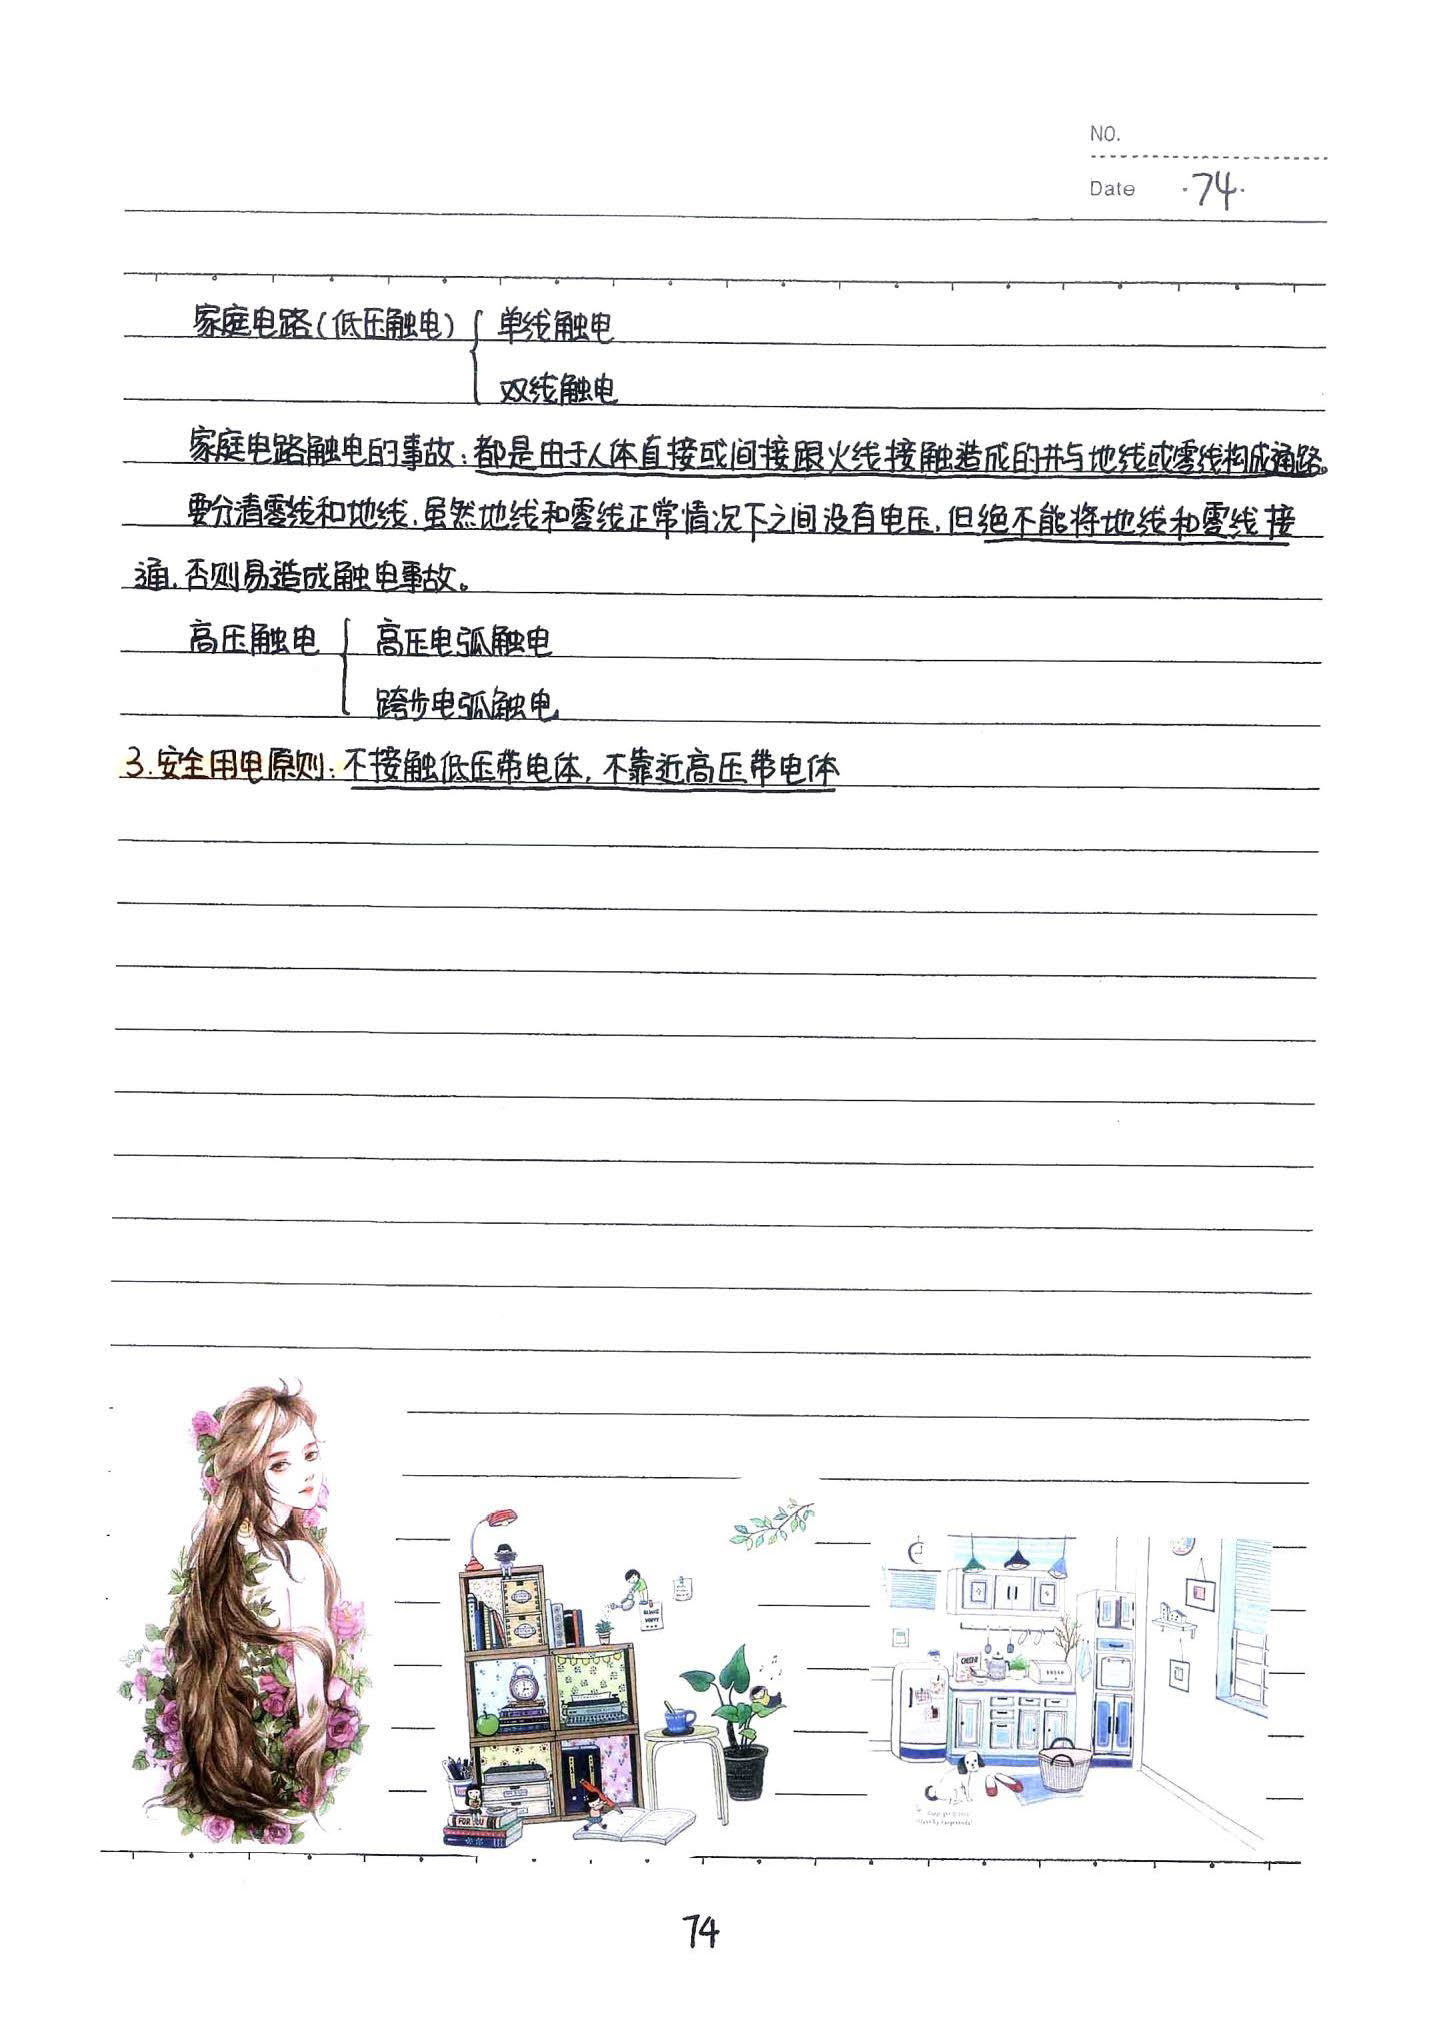 NO.
Date ·74·
家庭电路(低压触电) { 单线触电
双线触电
家庭电路触电的事故:都是由于人体直接或间接跟火线接触造成的并与地线或零线构成通路。
要分清零线和地线,虽然地线和零线正常情况下之间没有电压,但绝不能将地线和零线接
通,否则易造成触电事故。
高压触电 { 高压电弧触电
跨步电弧触电
3.安全用电原则:不接触低压带电体,不靠近高压带电体
FOR YOU
74